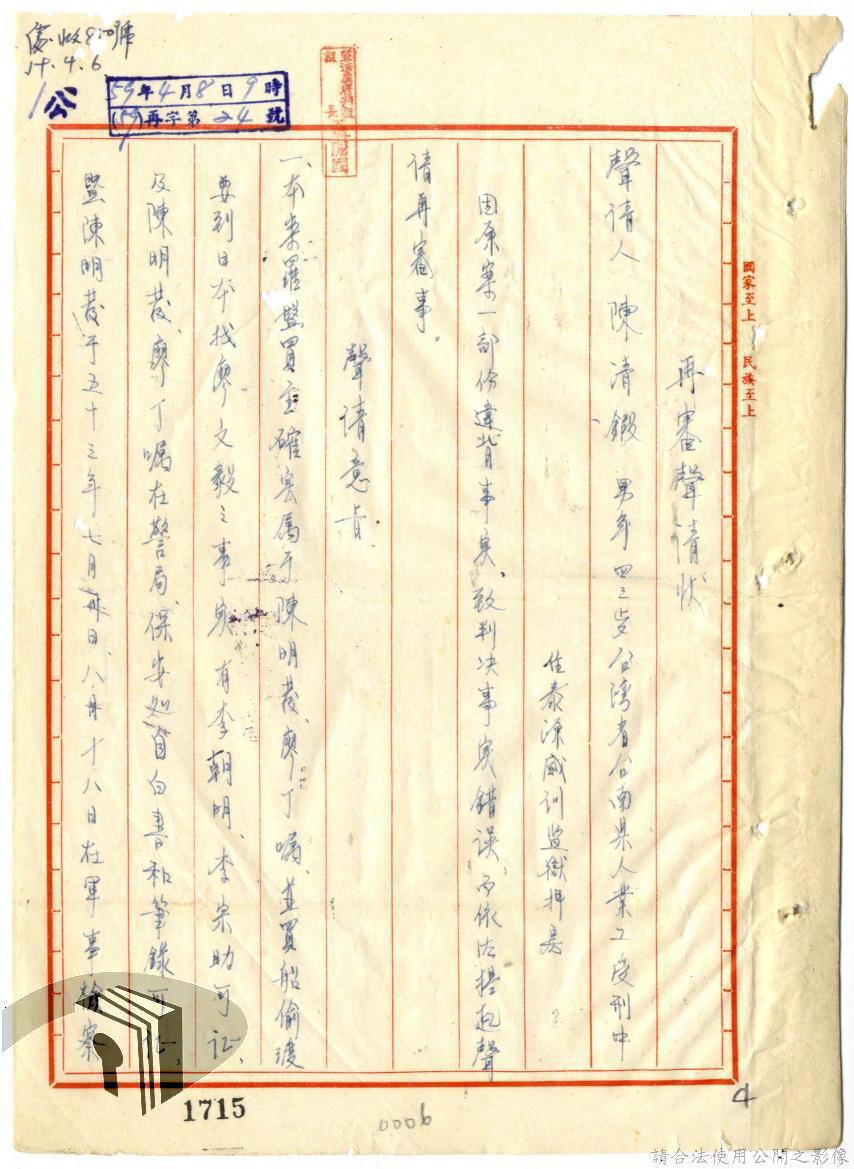 臺收820號
59.4.6
59年4月8日9時
(59)再字第24號
國家至上 民族至上
再審聲請狀
聲請人 陳清鍛 男年四三歲台湾省台南県人業工受刑中
住泰源感訓監獄押長
因原案一部份違背事実、致判决事実錯误、而依法提起聲
请再審事。
聲请意旨
一、本案羅盤買主確实属于陳明發、廖丁嘱、並買船偷渡
要到日本找廖文毅之事实有李朝明、李崇助可証、
及陳明發、廖丁嘱在警局、保安処自白書和筆錄可証、
暨陳明發于五十三年七月卅日、八月十八日在軍事檢察
4
1715
0006
請合法使用公開之影像